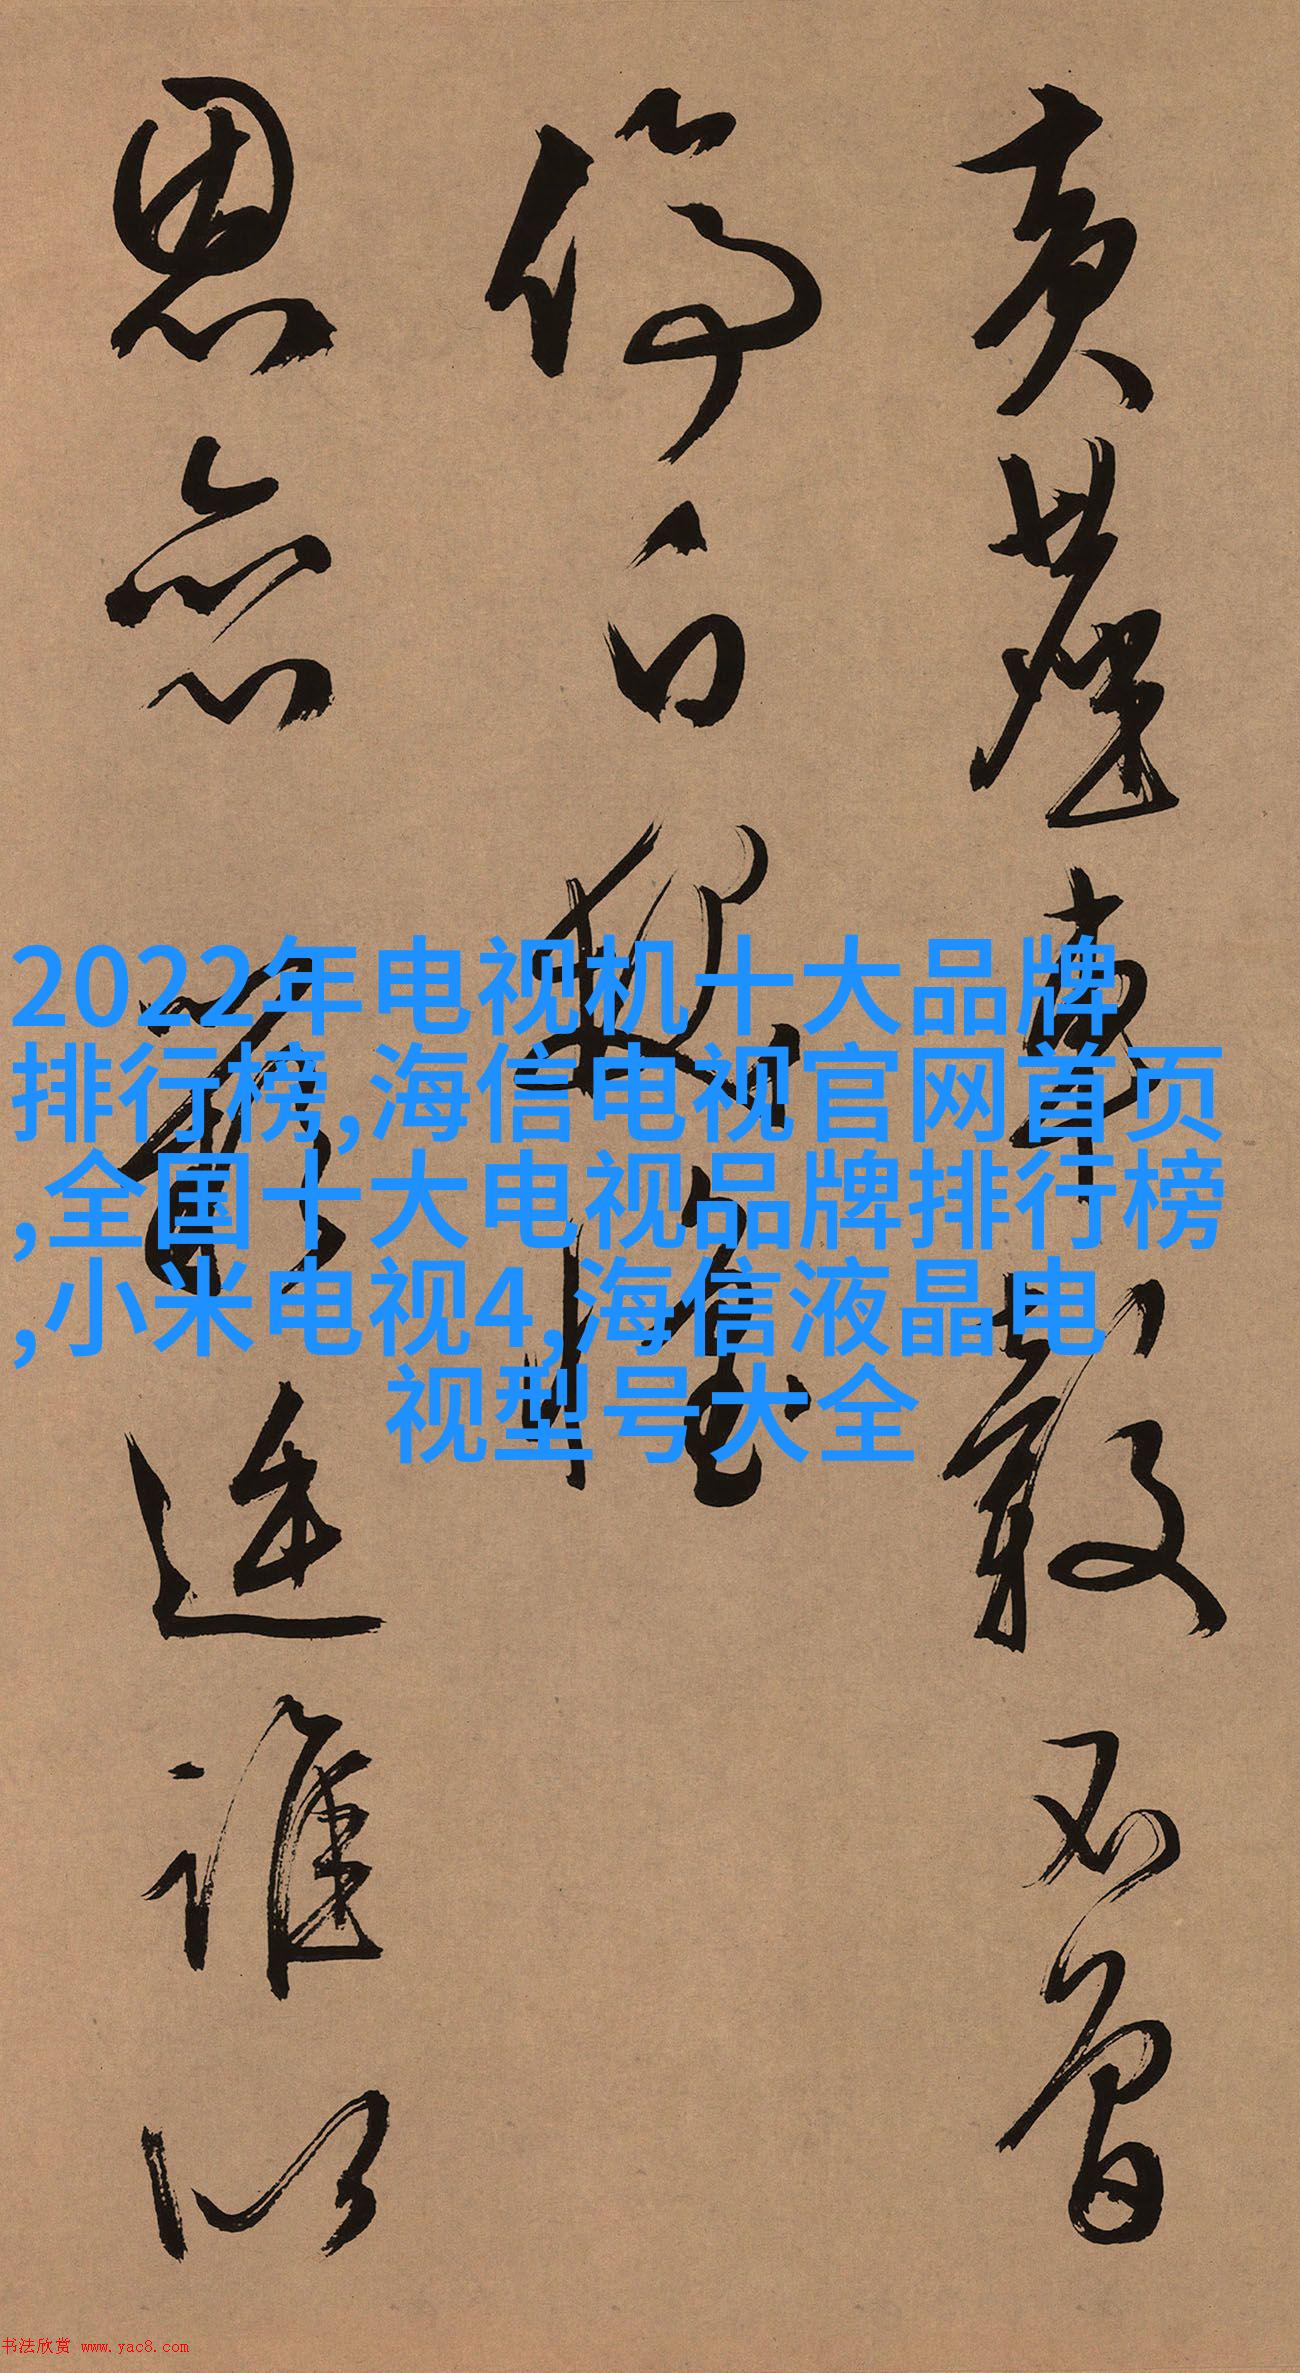 黄塵車轂不曾
停白
恩亦誰以
2022年电视机十大品牌
排行榜,海信电视官网首页
,全国十大电视品牌排行榜
,小米电视4,海信液晶电
视型号大全
书法欣赏 www.yac8.com